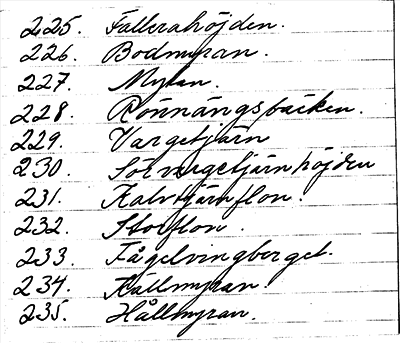 225. Fallerahöjden.
226. Bodmyran.
227. Myran.
228. Rönnängsbäcken.
229. Vargetjärn
230. Sörvargetjärnhöjden
231. Kalvtjärnflon.
232. Storflon.
233. Fågelvingberget.
234. Källmyran.
235. Hållmyran.